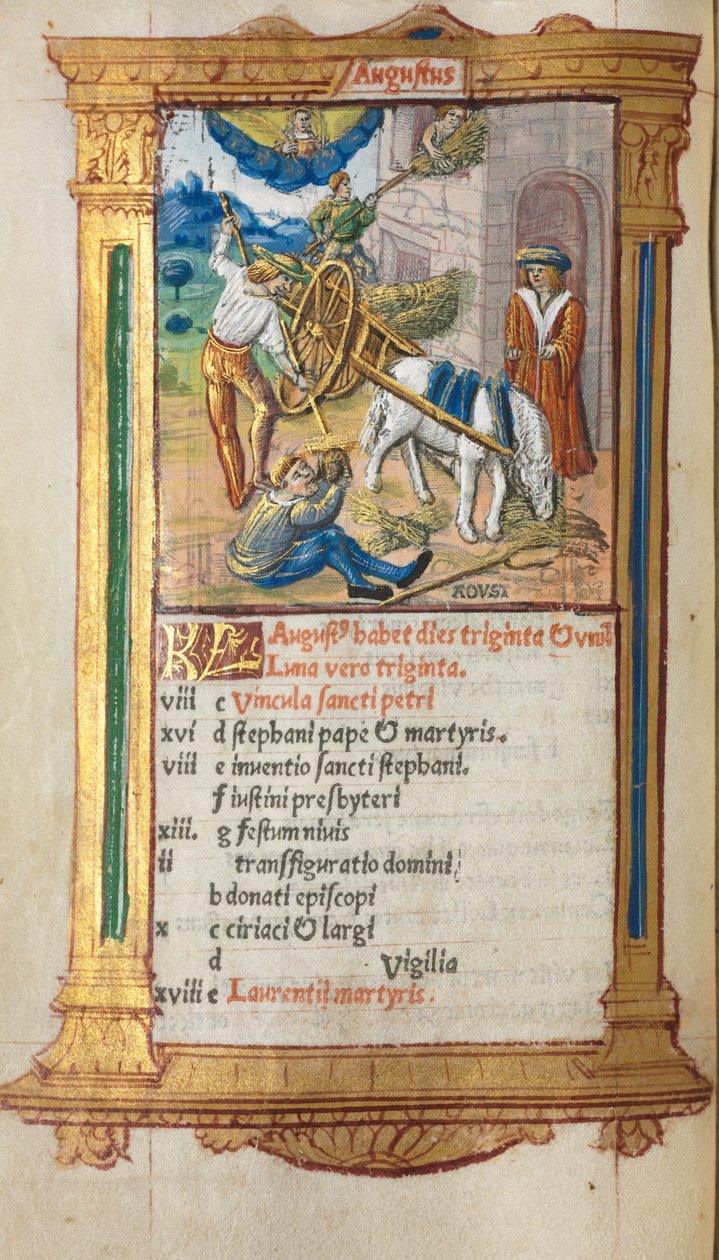 Augustus
AOVST
KL Augustꝰ habet dies triginta & vnū
Luna vero triginta.
viii c Vincula sancti petri
xvi d stephani pape & martyris.
viii e inventio sancti stephani.
f iustini presbyteri
xiii. g festum nivis
ii transfiguratio domini
b donati episcopi
x c ciriaci & largi
d Vigilia
xviii e Laurentij martyris.